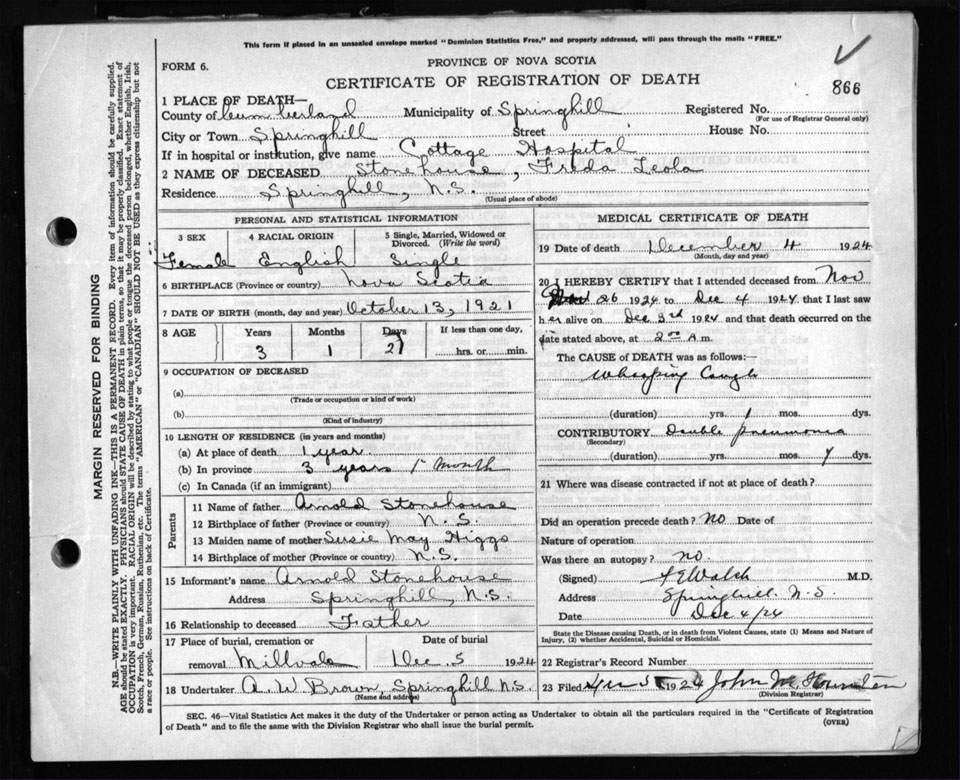 This form if placed in an unsealed envelope marked "Dominion Statistics Free," and properly addressed, will pass through the mails "FREE."
FORM 6.
PROVINCE OF NOVA SCOTIA
866
CERTIFICATE OF REGISTRATION OF DEATH
1 PLACE OF DEATH—
County of Cumberland Municipality of Springhill Registered No.
(For use of Registrar General only)
City or Town Springhill Street House No.
If in hospital or institution, give name Cottage Hospital
2 NAME OF DECEASED Stonehouse, Freda Leola
Residence Springhill, N.S.
(Usual place of abode)
PERSONAL AND STATISTICAL INFORMATION
3 SEX 4 RACIAL ORIGIN 5 Single, Married, Widowed or Divorced. (Write the word)
Female English Single
6 BIRTHPLACE (Province or country) Nova Scotia
7 DATE OF BIRTH (month, day and year) October 13, 1921
8 AGE Years Months Days If less than one day,
3 1 21 hrs. or min.
9 OCCUPATION OF DECEASED
(a)
(Trade or occupation or kind of work)
(b)
(Kind of industry)
10 LENGTH OF RESIDENCE (in years and months)
(a) At place of death 1 year
(b) In province 3 years 1 month
(c) In Canada (if an immigrant)
Parents
11 Name of father Arnold Stonehouse
12 Birthplace of father (Province or country) N.S.
13 Maiden name of mother Susie May Higgs
14 Birthplace of mother (Province or country) N.S.
15 Informant's name Arnold Stonehouse
Address Springhill, N.S.
16 Relationship to deceased Father
17 Place of burial, cremation or Date of burial
removal Millvale Dec. 5 1924
18 Undertaker A. W. Brown, Springhill N.S.
(Name and address)
MEDICAL CERTIFICATE OF DEATH
19 Date of death December 4 1924
(Month, day and year)
20 I HEREBY CERTIFY that I attended deceased from Nov
26 1924 to Dec 4 1924 that I last saw
her alive on Dec 3rd 1924 and that death occurred on the
date stated above, at 2 00 A m.
The CAUSE of DEATH was as follows:—
Whooping Cough
(duration) yrs. 1 mos. dys.
CONTRIBUTORY Double pneumonia
(Secondary)
(duration) yrs. mos. 7 dys.
21 Where was disease contracted if not at place of death?
Did an operation precede death? No Date of
Nature of operation
Was there an autopsy? no
(Signed) Walsh M.D.
Address Springhill N.S.
Date Dec 4/24
State the Disease causing Death, or in death from Violent Causes, state (1) Means and Nature of
Injury, (2) whether Accidental, Suicidal or Homicidal.
22 Registrar's Record Number
23 Filed 1924 John
(Division Registrar)
SEC. 46—Vital Statistics Act makes it the duty of the Undertaker or person acting as Undertaker to obtain all the particulars required in the "Certificate of Registration
of Death" and to file the same with the Division Registrar who shall issue the burial permit.
(OVER)
MARGIN RESERVED FOR BINDING
N.B.—WRITE PLAINLY WITH UNFADING INK—THIS IS A PERMANENT RECORD. Every item of information should be carefully supplied.
AGE should be stated EXACTLY. PHYSICIANS should STATE CAUSE OF DEATH in plain terms, so that it may be properly classified. Exact statement of
OCCUPATION is very important. RACIAL ORIGIN will be described by stating to what people or tongue the deceased person belonged, whether English, Irish,
Scotch, French, German, Russian, Ruthenian, etc. The terms "AMERICAN" or "CANADIAN" SHOULD NOT BE USED as they express citizenship but not
a race or people. See instructions on back of Certificate.